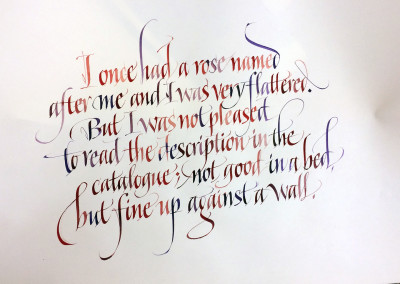 I once had a rose named
after me and I was very flattered.
But I was not pleased
to read the description in the
catalogue; not good in a bed,
but fine up against a wall.